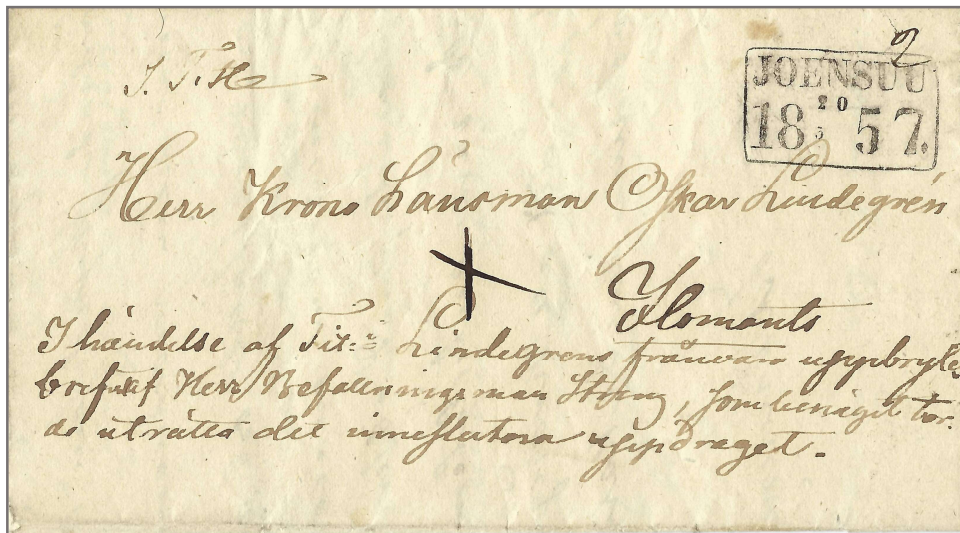 2
JOENSUU
18 20 57.
5
S. T. Hr
Herr Krono Länsman Oskar Lindegrén
Ilomants
I händelse af Tit:r Lindegrens frånvaro uppbrytes
brefvet af Herr Befallningsman Streng, som benäget tör-
de uträtta det inneslutna uppdraget.